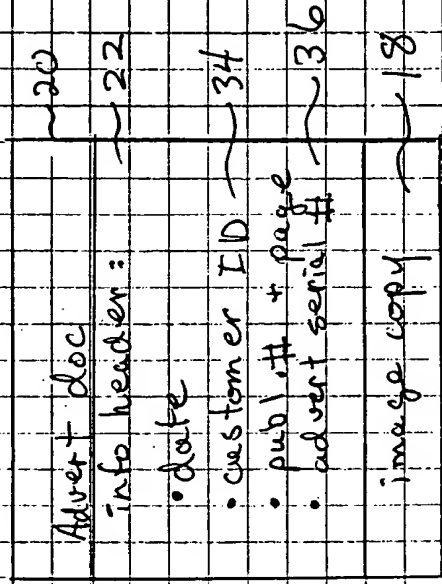 Advert doc 20
info header: 22
• date
• customer ID 34
• publ.# + page
• advert serial # 36
image copy 18